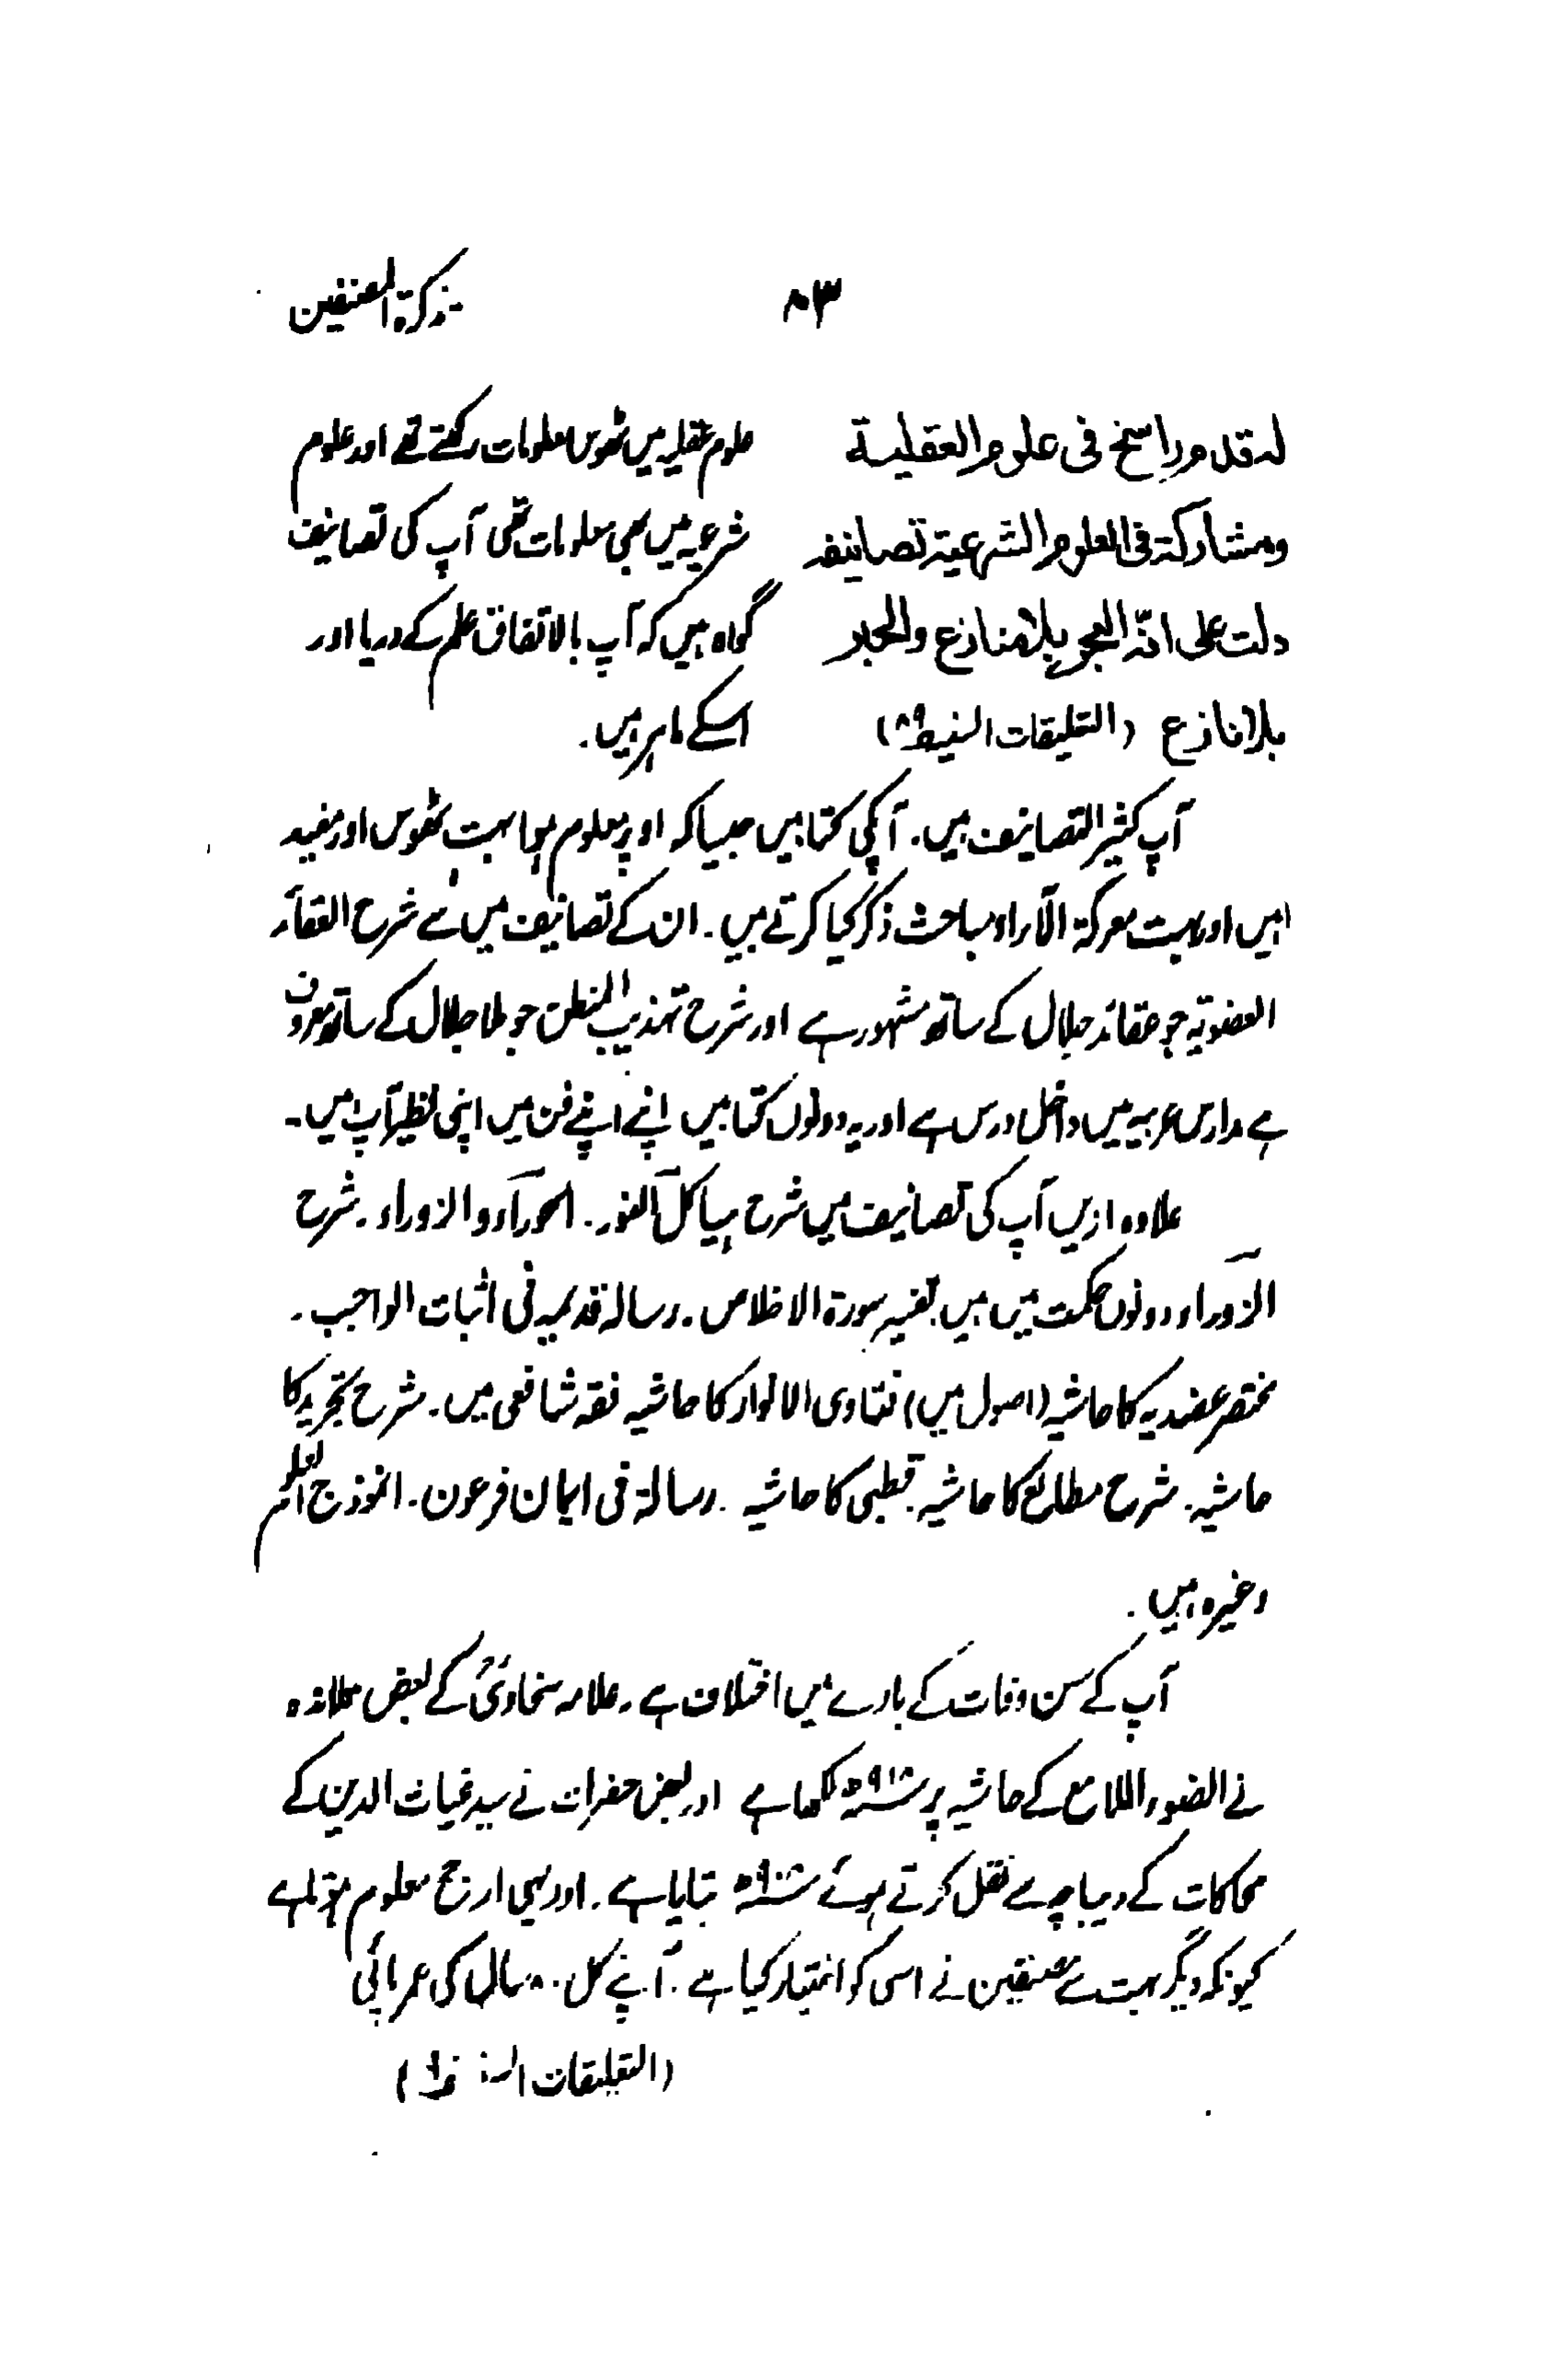 تذکرۃ المصنفین ۸۳
لہ قدم راسخ فی علوم العقلیۃ
ومشارکۃ فی العلوم الشرعیۃ تصانیفہ
دلت علی انہ البحر بلا منازع والحبر
بلا نازع (التعلیقات السنیہ ۸۹)
علوم عقلیہ میں ٹھوس معلومات رکھتے تھے اور علوم
شرعیہ میں بھی معلومات تھی آپ کی تصانیف
گواہ ہیں کہ آپ بالاتفاق علم کے دریا اور
اسکے ماہر ہیں۔
آپ کثیر التصانیف ہیں۔ آپکی کتابیں جیسا کہ اوپر معلوم ہوا بہت ٹھوس اور مفید
ہیں اور بہت معرکۃ الآراء مباحث ذکر کیا کرتے ہیں۔ ان کے تصانیف میں سے شرح العقائد
العضویۃ جو عقائد جلال کے ساتھ مشہور ہے اور شرح تہذیب المنطق جو ملا جلال کے ساتھ معروف
ہے مدارس عربیہ میں داخل درس ہے اور یہ دونوں کتابیں اپنے اپنے فن میں اپنی نظیر آپ ہیں۔
علاوہ ازیں آپ کی تصانیف میں شرح ہیاکل النور۔ الحوراء و الزوراء۔ شرح
الزوراء دونوں حکمت میں ہیں تفسیر سورۃ الاخلاص۔ رسالہ قدیمہ فی اثبات الواجب۔
مختصر عضدیہ کا حاشیہ (اصول میں) فتاوی الانوار کا حاشیہ فقہ شافعی میں۔ شرح تجرید کا
حاشیہ۔ شرح مطالع کا حاشیہ قطبی کا حاشیہ۔ رسالۃ فی ایمان فرعون۔ انموذج العلوم
وغیرہ ہیں۔
آپ کے سن وفات کے بارے میں اختلاف ہے۔ علامہ سخاویؒ کے بعض تلامذہ
نے الضوء اللامع کے حاشیہ پر ۹۱۸ھ لکھا ہے اور بعض حضرات نے سید غیاث الدین کے
محاکات کے دیباچہ سے نقل کرتے ہوئے ۹۰۸ھ بتایا ہے۔ اور یہی ارجح معلوم ہوتا ہے
کیونکہ دیگر بہت سے مصنفین نے اسی کو اختیار کیا ہے۔ آپنے کل ۸۰ سال کی عمر پائی
(التعلیقات